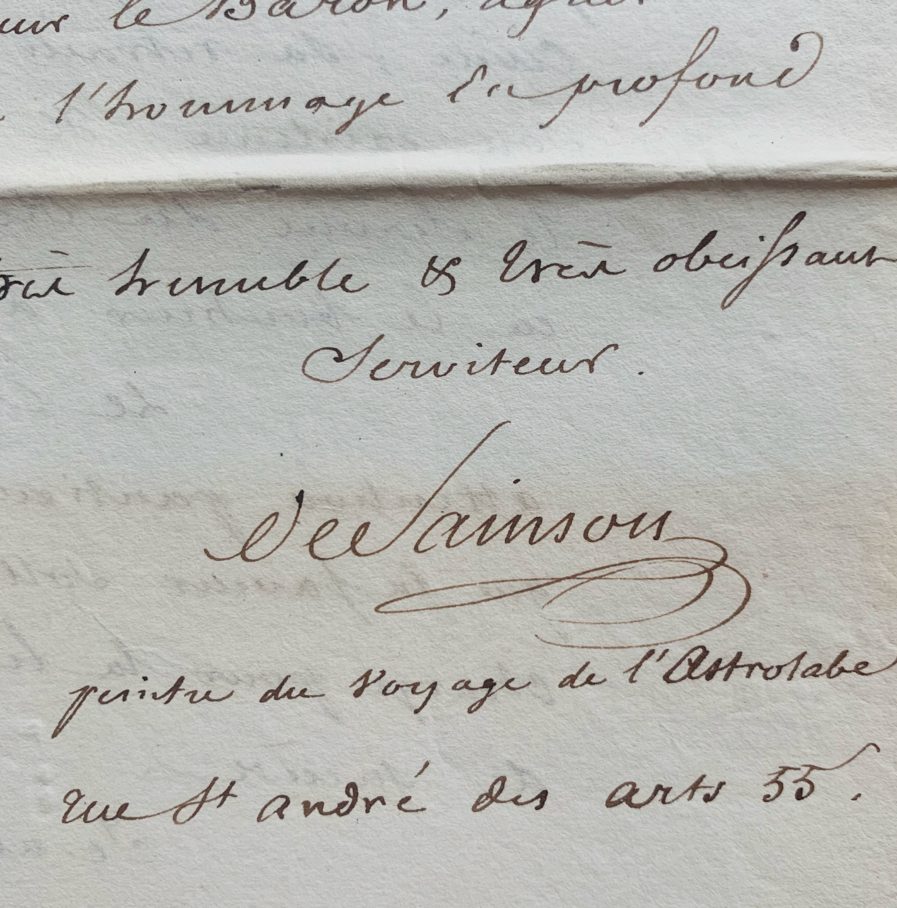 le Baron, agréer
l'hommage du profond
très humble & très obeissant
Serviteur.
de Sainson
peintre du voyage de l'Astrolabe
rue St andré des arts 55.